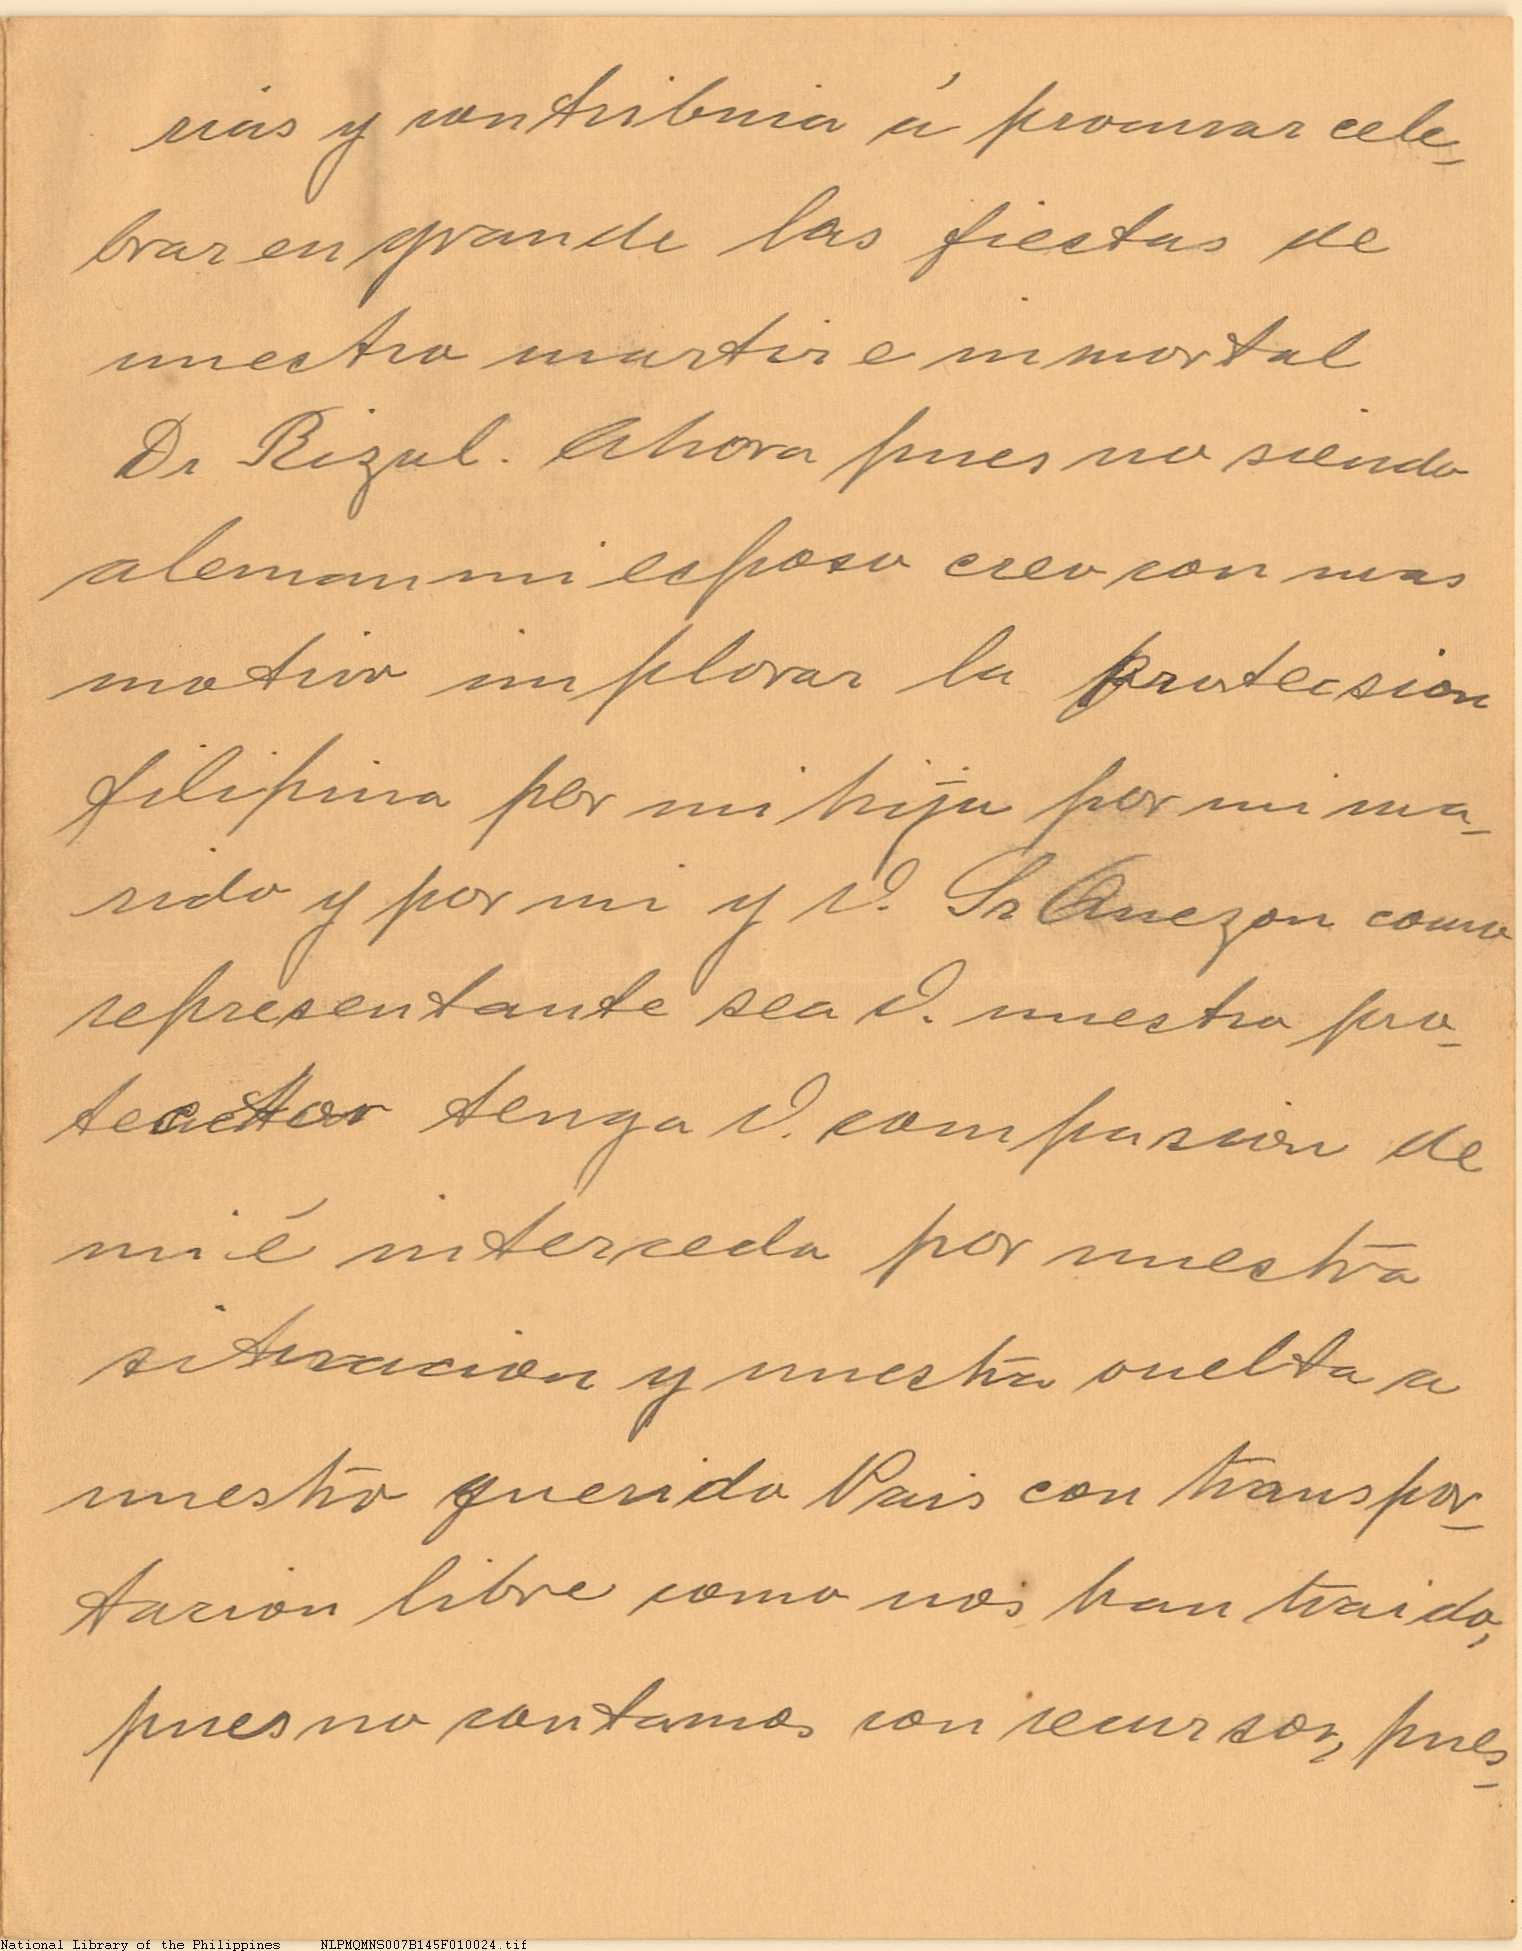 rias y contribuia á procurar cele-
brar en grande las fiestas de
nuestro martir e inmortal
Dr Rizal. Ahora pues no siendo
aleman mi esposo creo con mas
motivo implorar la protecsion
filipina por mi hija por mi ma-
rido y por mi y V. Sr Quezon como
representante sea V. nuestro pro-
tector tenga V. compasion de
mi é interceda por nuestra
situacion y nuestra vuelta a
nuestro querido Pais con transpor-
tacion libre como nos han traido,
pues no contamos con recursos, pues-
National Library of the Philippines NLPMQMNS007B145F010024.tif